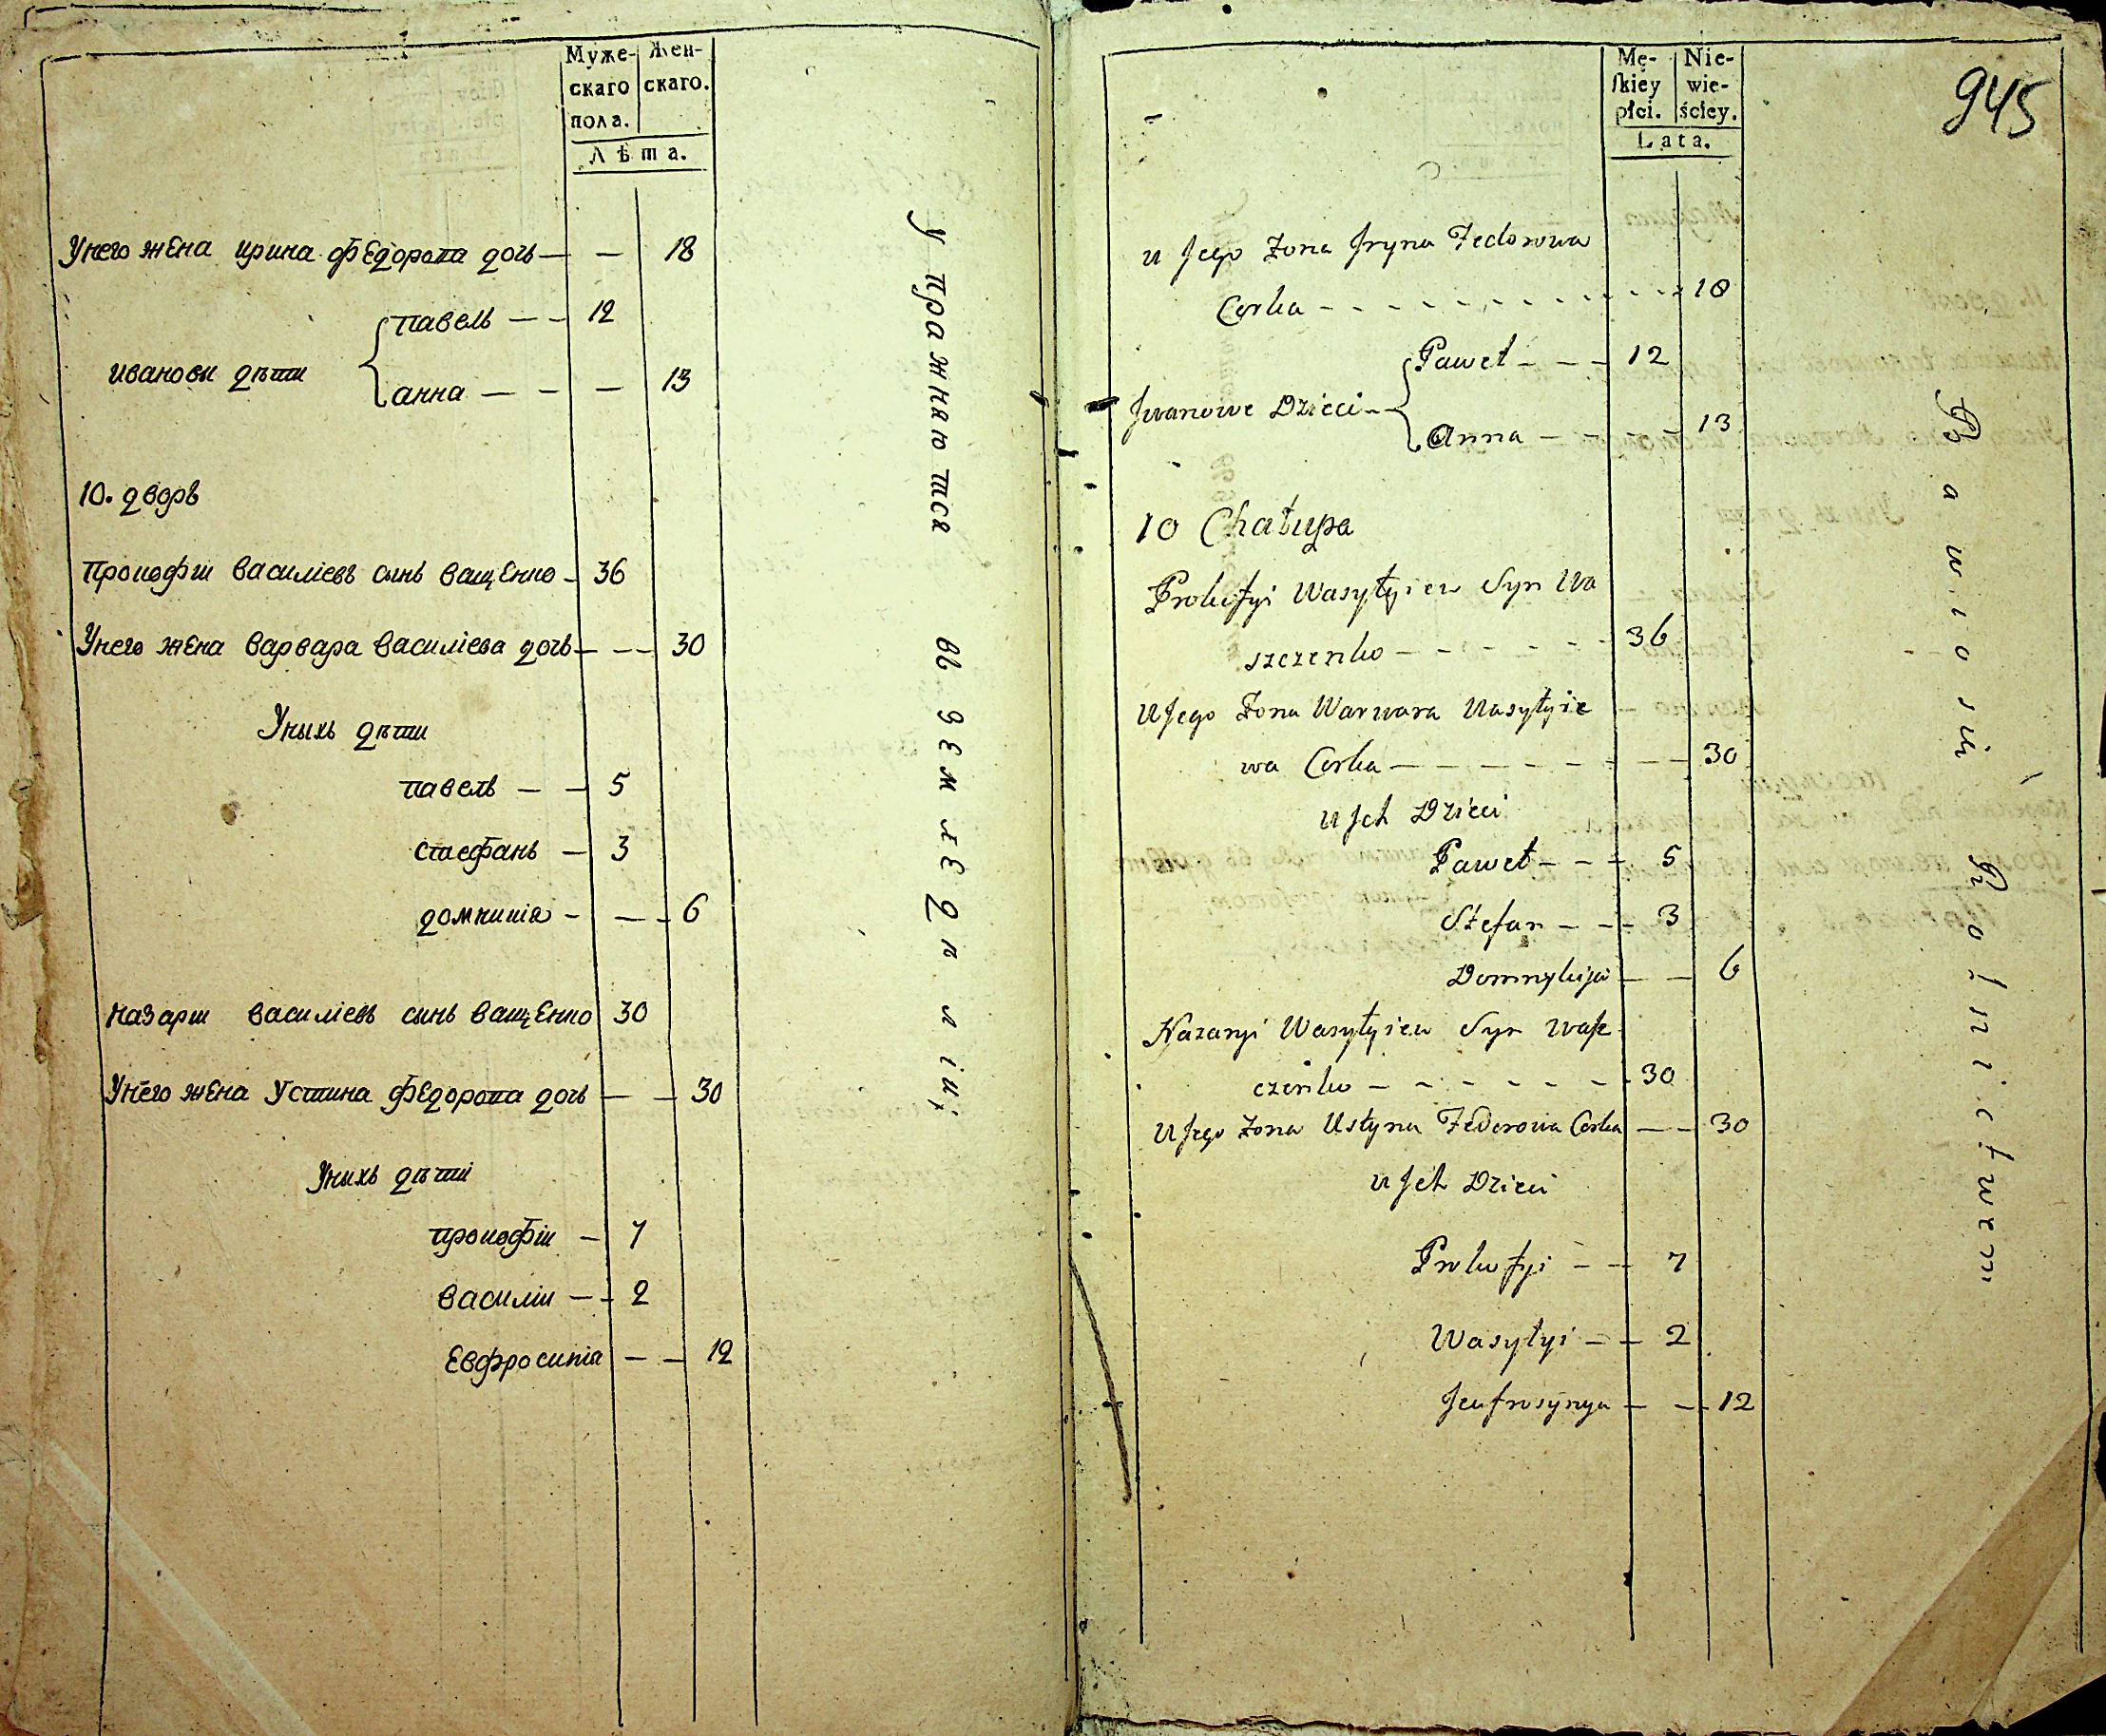 Муже-
скаго
пола.
Жен-
скаго.
Лѣта.
Унего жена ирина федорова дочь — — 18
павелъ — — 12
ивановы дѣти
анна — — — 13
10. дворъ
Прокофіи василіевъ сынъ ващенко — 36
Унего жена варвара василіева дочь — — — 30
Уныхъ дѣти
павелъ — — 5
стефанъ — 3
домникія — — — 6
назаріи василіевъ сынъ ващенко 30
Унего жена Устина федорова дочь — — 30
Уныхъ дѣти
прокофіи — 7
василіи — — 2
Евфросинія — — 12
Упражняются въ земледѣліи;
Mę-
skiey
płci.
Nie-
wie-
ściey.
Lata.
945
u Jego Żona Jryna Fedorowa
Corka - - - - - - - - - - - 18
Paweł - - - 12
Jwanowe Dzieci - -
Anna - - - - 13
10 Chałupa
Prokofyi Wasyłyiew Syn Wa
szczenko - - - - - - 36
u Jego Żona Warwara Wasyłyie
wa Corka - - - - - - - - 30
u Jch Dzieci
Paweł - - - 5
Stefan - - - 3
Domnykija - - 6
Nazaryi Wasyłyiew Syn Wasz
czenko - - - - - - - 30
u Jego Żona Ustyna Fedorowa Corka - - 30
u Jch Dzieci
Prokofyi - - 7
Wasyłyi - - 2
Jeufrosynya - - - 12
Bawio się Rolnictwem